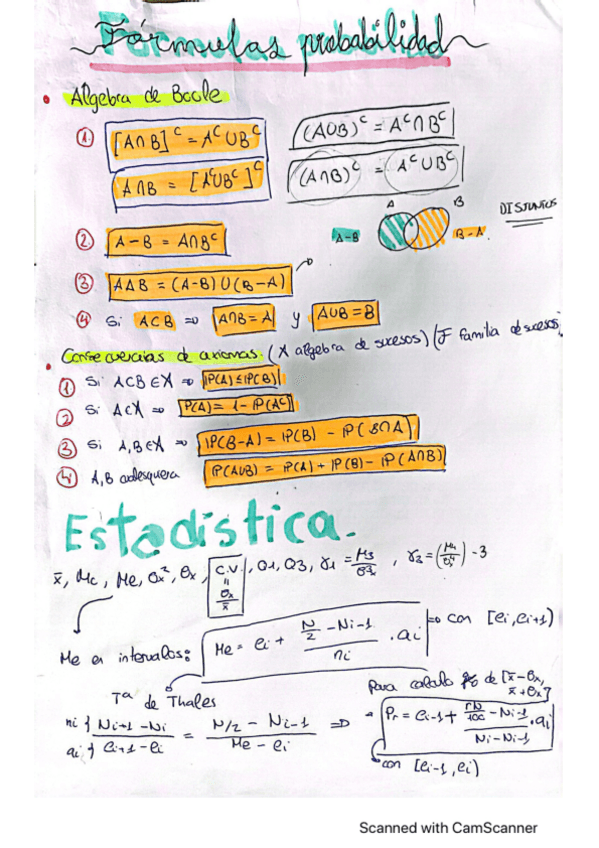 Fórmulas probabilidad
• Algebra de Boole
① [A∩B]ᶜ = Aᶜ∪Bᶜ    (A∪B)ᶜ = Aᶜ∩Bᶜ
A∩B = [Aᶜ∪Bᶜ]ᶜ    (A∩B)ᶜ = Aᶜ∪Bᶜ
② A-B = A∩Bᶜ    A-B    A    B    B-A    DISJUNTOS
③ A∆B = (A-B)∪(B-A)
④ Si A⊂B ⇒ A∩B=A y A∪B=B
• Consecuencias de axiomas: (A algebra de sucesos) (F familia de sucesos)
① Si A⊂B∈A ⇒ P(A)≤P(B)
② Si A∈A ⇒ P(A) = 1 - P(Aᶜ)
③ Si A,B∈A ⇒ P(B-A) = P(B) - P(B∩A)
④ A,B cualesquiera P(A∪B) = P(A) + P(B) - P(A∩B)
Estadística.
x̄, Mc, Me, σx², σx, C.V. = σx/x̄, Q1, Q3, γ1 = M3/σ³x, γ2 = (M4/σ⁴x) - 3
Me en intervalos: Me = ei + (N/2 - Ni-1)/ni . ai ⇒ con [ei, ei+1)
Tª de Thales
Para calculo % de [x̄-σx, x̄+σx]
ni { Ni+1 - Ni / ai { ei+1 - ei = (N/2 - Ni-1)/(Me - ei) ⇒ Pr = ei-1 + (rN/100 - Ni-1)/(Ni - Ni-1) . ai
con [ei-1, ei)
Scanned with CamScanner